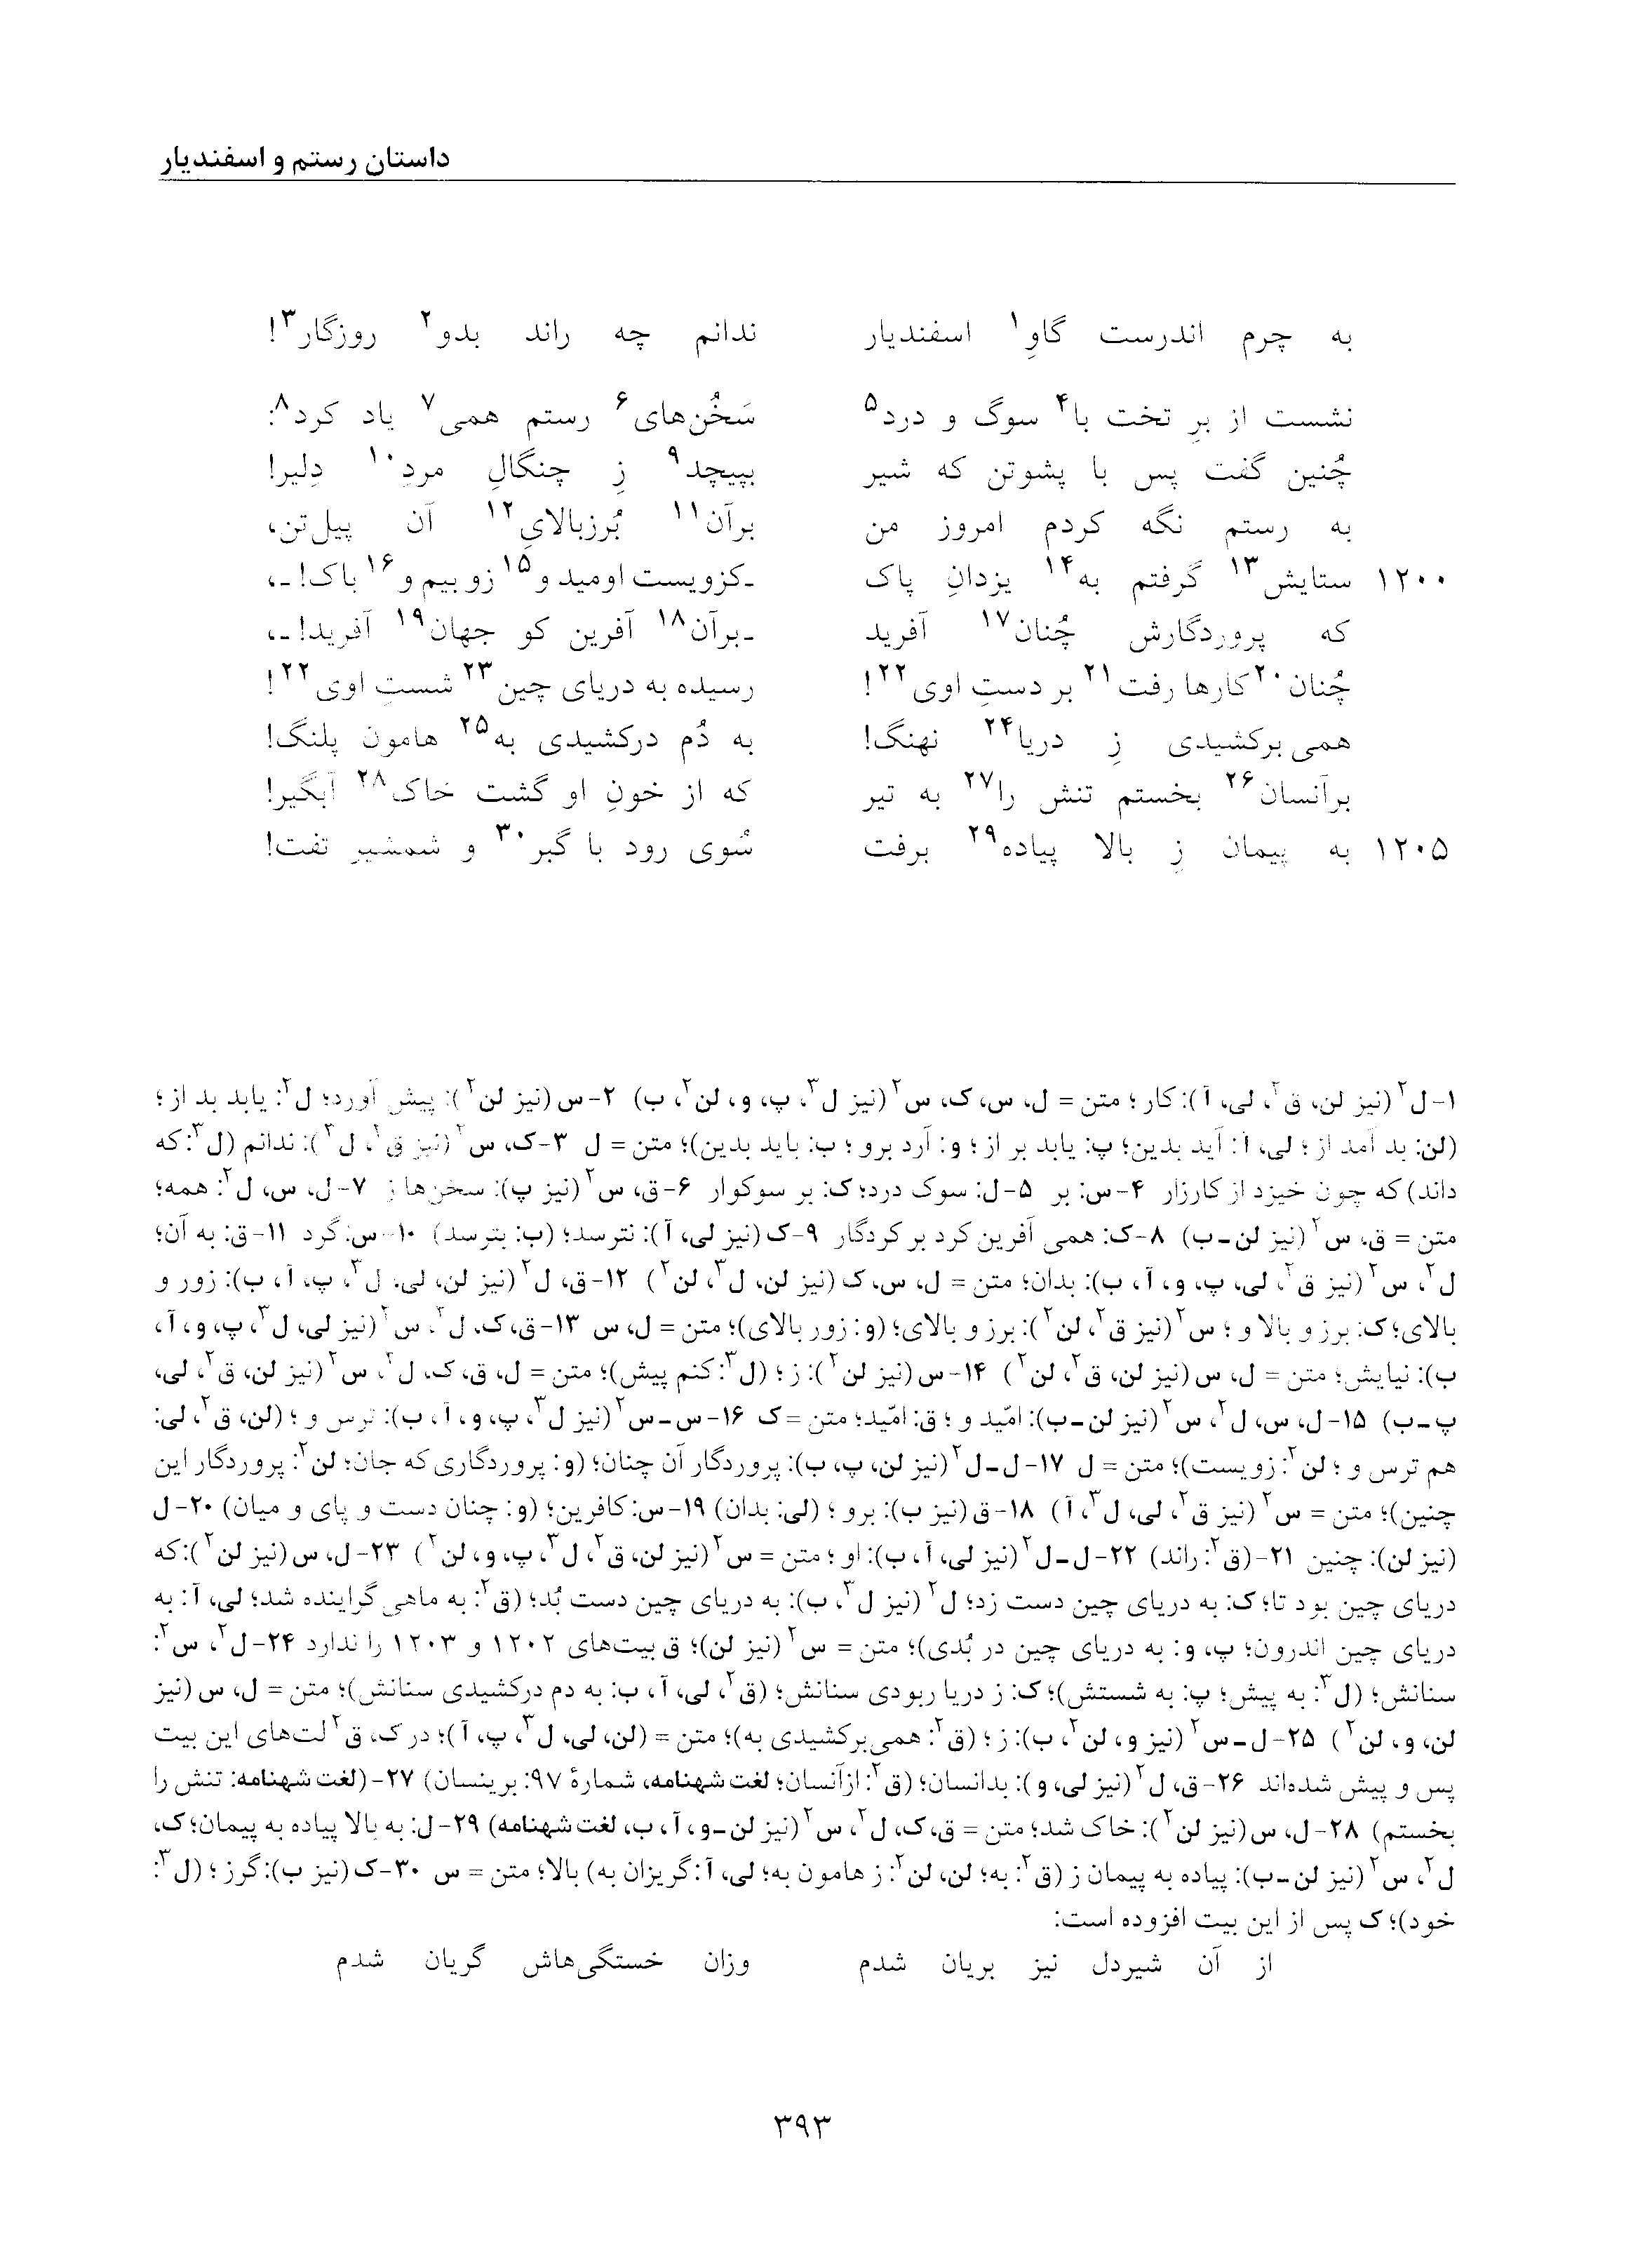 داستان رستم و اسفندیار
به چرم اندرست گاوِ۱ اسفندیار ندانم چه راند بدو۲ روزگار۳!
نشست از برِ تخت با۴ سوگ و درد۵ سَخُن‌های۶ رستم همی۷ یاد کرد۸:
چُنین گفت پس با پشوتن که شیر بپیچد۹ زِ چنگالِ مردِ۱۰ دِلیر!
به رستم نگه کردم امروز من برآن۱۱ بُرزبالایِ۱۲ آن پیل‌تن،
۱۲۰۰ ستایش۱۳ گرفتم به۱۴ یزدانِ پاک ـ کزویست اومید و۱۵ زو بیم و۱۶ باک! ـ،
که پروردگارش چُنان۱۷ آفرید ـ برآن۱۸ آفرین کو جهان۱۹ آفرید! ـ،
چُنان۲۰ کارها رفت۲۱ بر دستِ اوی۲۲! رسیده به دریای چین۲۳ شستِ اوی۲۲!
همی برکشیدی زِ دریا۲۴ نهنگ! به دُم درکشیدی به۲۵ هامون پلنگ!
برآنسان۲۶ بخستم تنش را۲۷ به تیر که از خونِ او گشت خاک۲۸ آبگیر!
۱۲۰۵ به پیمان زِ بالا پیاده۲۹ برفت سُوی رود با گبر۳۰ و شمشیر تفت!
۱- ل۲ (نیز لن، ق۲، لی، آ): کار؛ متن = ل، س، ک، س۲ (نیز ل۳، پ، و، لن۲، ب) ۲- س (نیز لن۲): پیش آورد؛ ل۲: یابد بد از؛
(لن: بد آمد از؛ لی، آ: آید بدین؛ پ: یابد بر از؛ و: آرد برو؛ ب: باید بدین)؛ متن = ل ۳- ک، س۲ (نیز ق۲، ل۳): ندانم (ل۳: که
داند) که چون خیزد از کارزار ۴- س: بر ۵- ل: سوک درد؛ ک: بر سوکوار ۶- ق، س۲ (نیز پ): سخن‌ها ز ۷- ل، س، ل۲: همه؛
متن = ق، س۲ (نیز لن ـ ب) ۸- ک: همی آفرین کرد بر کردگار ۹- ک (نیز لی، آ): نترسد؛ (ب: بترسد) ۱۰- س: گرد ۱۱- ق: به آن؛
ل۲، س۲ (نیز ق۲، لی، پ، و، آ، ب): بدان؛ متن = ل، س، ک (نیز لن، ل۳، لن۲) ۱۲- ق، ل۲ (نیز لن، لی، ل۳، پ، آ، ب): زور و
بالای؛ ک: برز و بالا و؛ س۲ (نیز ق۲، لن۲): برز و بالای؛ (و: زور بالای)؛ متن = ل، س ۱۳- ق، ک، ل۲، س۲ (نیز لی، ل۳، پ، و، آ،
ب): نیایش؛ متن = ل، س (نیز لن، ق۲، لن۲) ۱۴- س (نیز لن۲): ز؛ (ل۳: کنم پیش)؛ متن = ل، ق، ک، ل۲، س۲ (نیز لن، ق۲، لی،
پ ـ ب) ۱۵- ل، س، ل۲، س۲ (نیز لن ـ ب): امّید و؛ ق: امّید؛ متن = ک ۱۶- س ـ س۲ (نیز ل۳، پ، و، آ، ب): ترس و؛ (لن، ق۲، لی:
هم ترس و؛ لن۲: زویست)؛ متن = ل ۱۷- ل ـ ل۲ (نیز لن، پ، ب): پروردگار آن چنان؛ (و: پروردگاری که جان؛ لن۲: پروردگار این
چنین)؛ متن = س۲ (نیز ق۲، لی، ل۳، آ) ۱۸- ق (نیز ب): برو؛ (لی: بدان) ۱۹- س: کافرین؛ (و: چنان دست و پای و میان) ۲۰- ل
(نیز لن): چنین ۲۱- (ق۲: راند) ۲۲- ل ـ ل۲ (نیز لی، آ، ب): او؛ متن = س۲ (نیز لن، ق۲، ل۳، پ، و، لن۲) ۲۳- ل، س (نیز لن۲): که
دریای چین بود تا؛ ک: به دریای چین دست زد؛ ل۲ (نیز ل۳، ب): به دریای چین دست بُد؛ (ق۲: به ماهی گراینده شد؛ لی، آ: به
دریای چین اندرون؛ پ، و: به دریای چین در بُدی)؛ متن = س۲ (نیز لن)؛ ق بیت‌های ۱۲۰۲ و ۱۲۰۳ را ندارد ۲۴- ل۲، س۲:
سنانش؛ (ل۳: به پیش؛ پ: به شستش)؛ ک: ز دریا ربودی سنانش؛ (ق۲، لی، آ، ب: به دم درکشیدی سنانش)؛ متن = ل، س (نیز
لن، و، لن۲) ۲۵- ل ـ س۲ (نیز و، لن۲، ب): ز؛ (ق۲: همی برکشیدی به)؛ متن = (لن، لی، ل۳، پ، آ)؛ در ک، ق۲ لت‌های این بیت
پس و پیش شده‌اند ۲۶- ق، ل۲ (نیز لی، و): بدانسان؛ (ق۲: ازآنسان؛ لغت شهنامه، شمارهٔ ۹۷: برینسان) ۲۷- (لغت شهنامه: تنش را
بخستم) ۲۸- ل، س (نیز لن۲): خاک شد؛ متن = ق، ک، ل۲، س۲ (نیز لن ـ و، آ، ب، لغت شهنامه) ۲۹- ل: به بالا پیاده به پیمان؛ ک،
ل۲، س۲ (نیز لن ـ ب): پیاده به پیمان ز (ق۲: به؛ لن، لن۲: ز هامون به؛ لی، آ: گریزان به) بالا؛ متن = س ۳۰- ک (نیز ب): گرز؛ (ل۳:
خود)؛ ک پس از این بیت افزوده است:
از آن شیردل نیز بریان شدم وزان خستگی‌هاش گریان شدم
۳۹۳